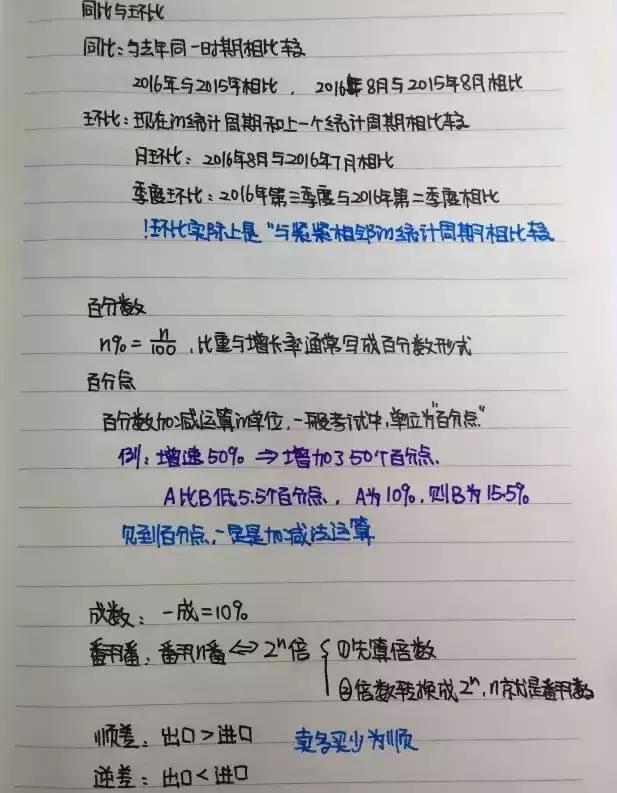 同比与环比
同比:与去年同一时期相比较
2016年与2015年相比,2016年8月与2015年8月相比
环比:现在的统计周期和上一个统计周期相比较
月环比:2016年8月与2016年7月相比
季度环比:2016年第三季度与2016年第二季度相比
!环比实际上是"与紧紧相邻的统计周期相比较
百分数
n%=n/100,比重与增长率通常写成百分数形式
百分点
百分数加减运算的单位,一般考试中,单位为"百分点"
例:增速50% ⇒ 增加了50个百分点.
A比B低5.5个百分点,A为10%,则B为15.5%
见到百分点,一定是加减法运算
成数:一成=10%
翻番:翻n番⇔2ⁿ倍{①先算倍数
②倍数转换成2ⁿ,n就是翻番数
顺差:出口>进口 卖多买少为顺
逆差:出口<进口